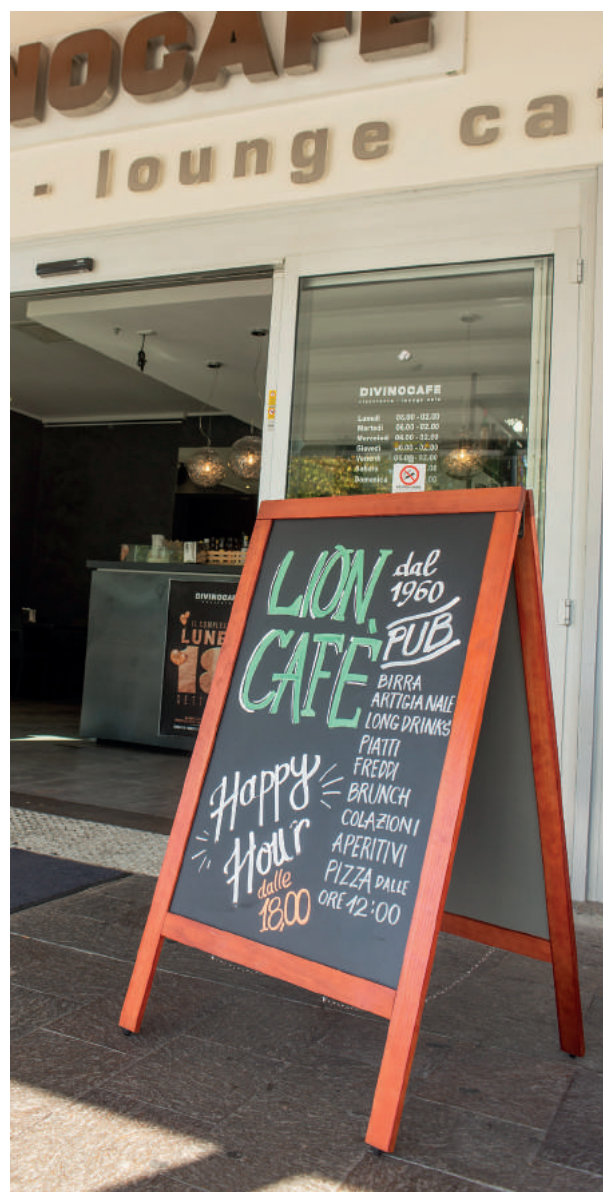 NOCAFE
- lounge caf
DIVINOCAFE
ristorante - lounge cafe
Lunedì 06.00 - 02.00
Martedì 06.00 - 02.00
Mercoledì 06.00 - 02.00
Giovedì 06.00 - 02.00
Venerdì 06.00 - 02.00
Sabato
Domenica
DIVINOCAF
IL COMPLE
LUNE
LION
CAFÈ
dal
1960
PUB
BIRRA
ARTIGIANALE
LONG DRINKS
PIATTI
FREDDI
BRUNCH
COLAZIONI
APERITIVI
PIZZA DALLE
ORE 12:00
Happy
Hour
dalle
18,00